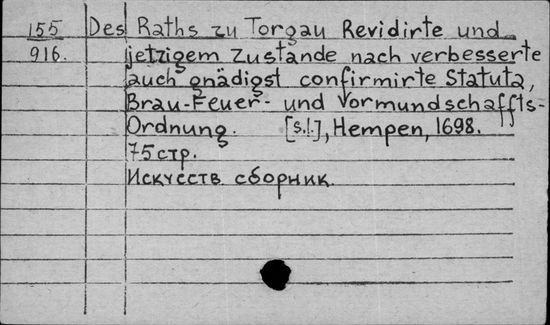 155 Des Raths zu Torgau Revidirte und
916. jetzigem Zustande nach verbesserte
auch gnädigst confirmirte Statuta,
Brau-Feuer- und Vormundschaffts-
Ordnung. [s.l.], Hempen, 1698.
75 стр.
Искусств. сборник.